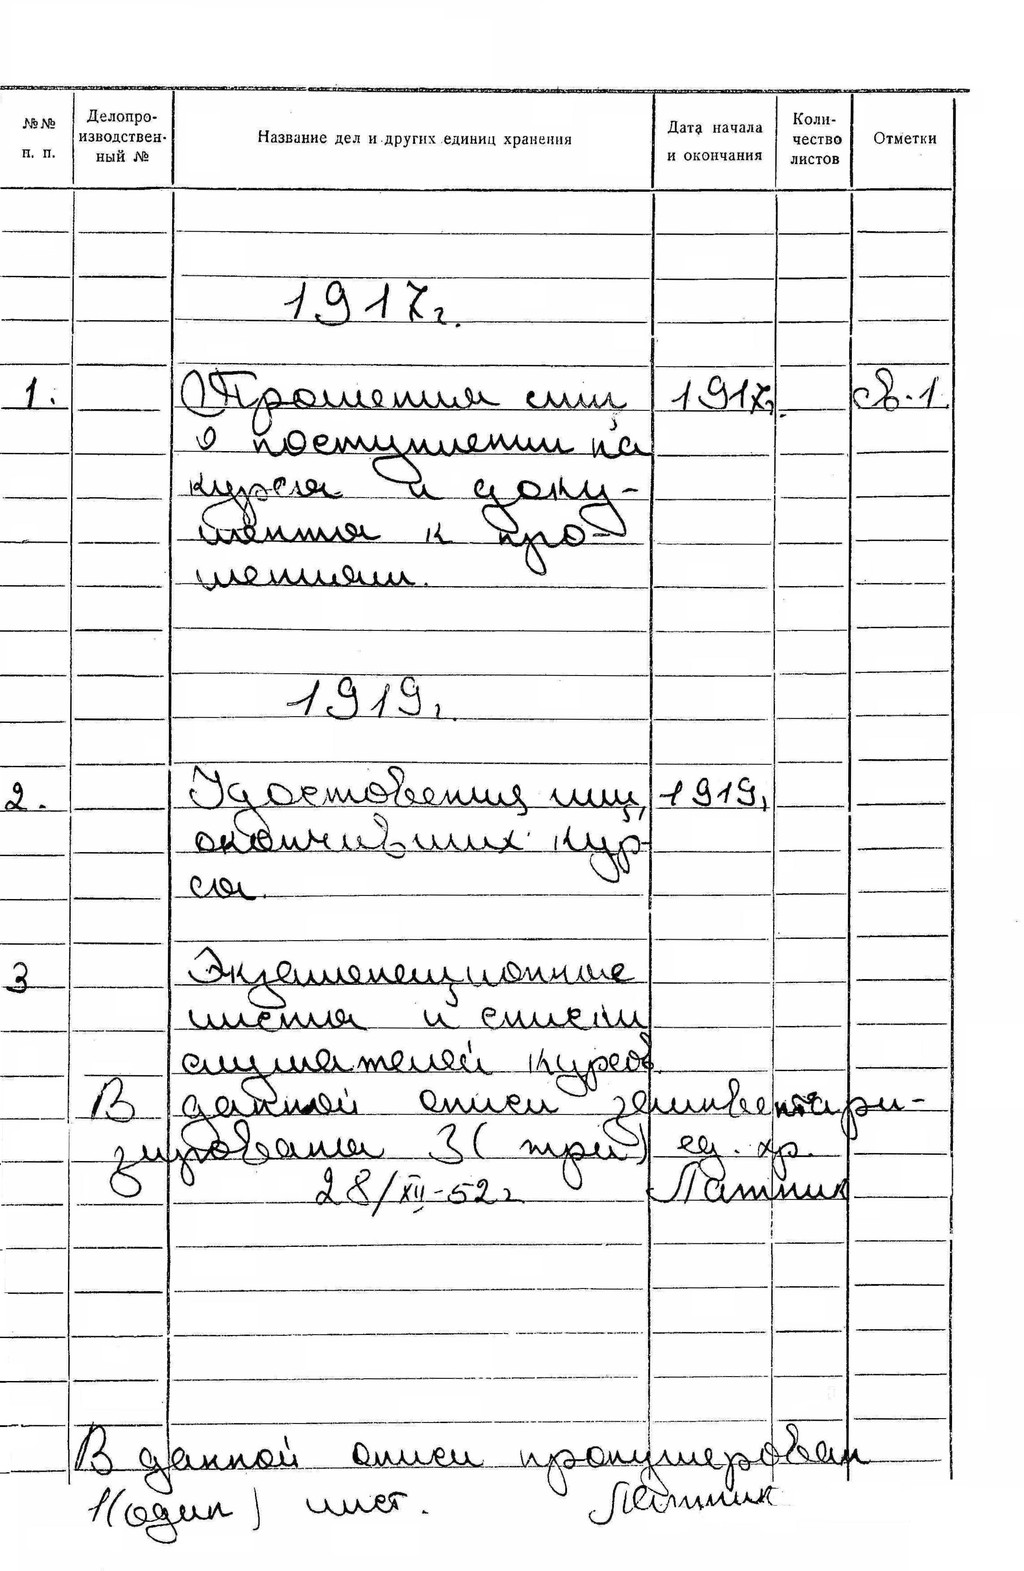 №№ п. п. Делопроизводственный № Название дел и других единиц хранения Дата начала и окончания Количество листов Отметки
1917 г.
1. Прошения лиц 1917 г. св. 1.
о поступлении на
курсы и доку-
менты к про-
шениям.
1919 г.
2. Удостоверения лиц, 1919 г.
окончивших кур-
сы.
3 Экзаменационные
листы и списки
слушателей курсов
В данной описи заинвентари-
зировано 3 (три) ед. хр.
28/XII-52 г.
В данной описи пронумерован
1 (один) лист.